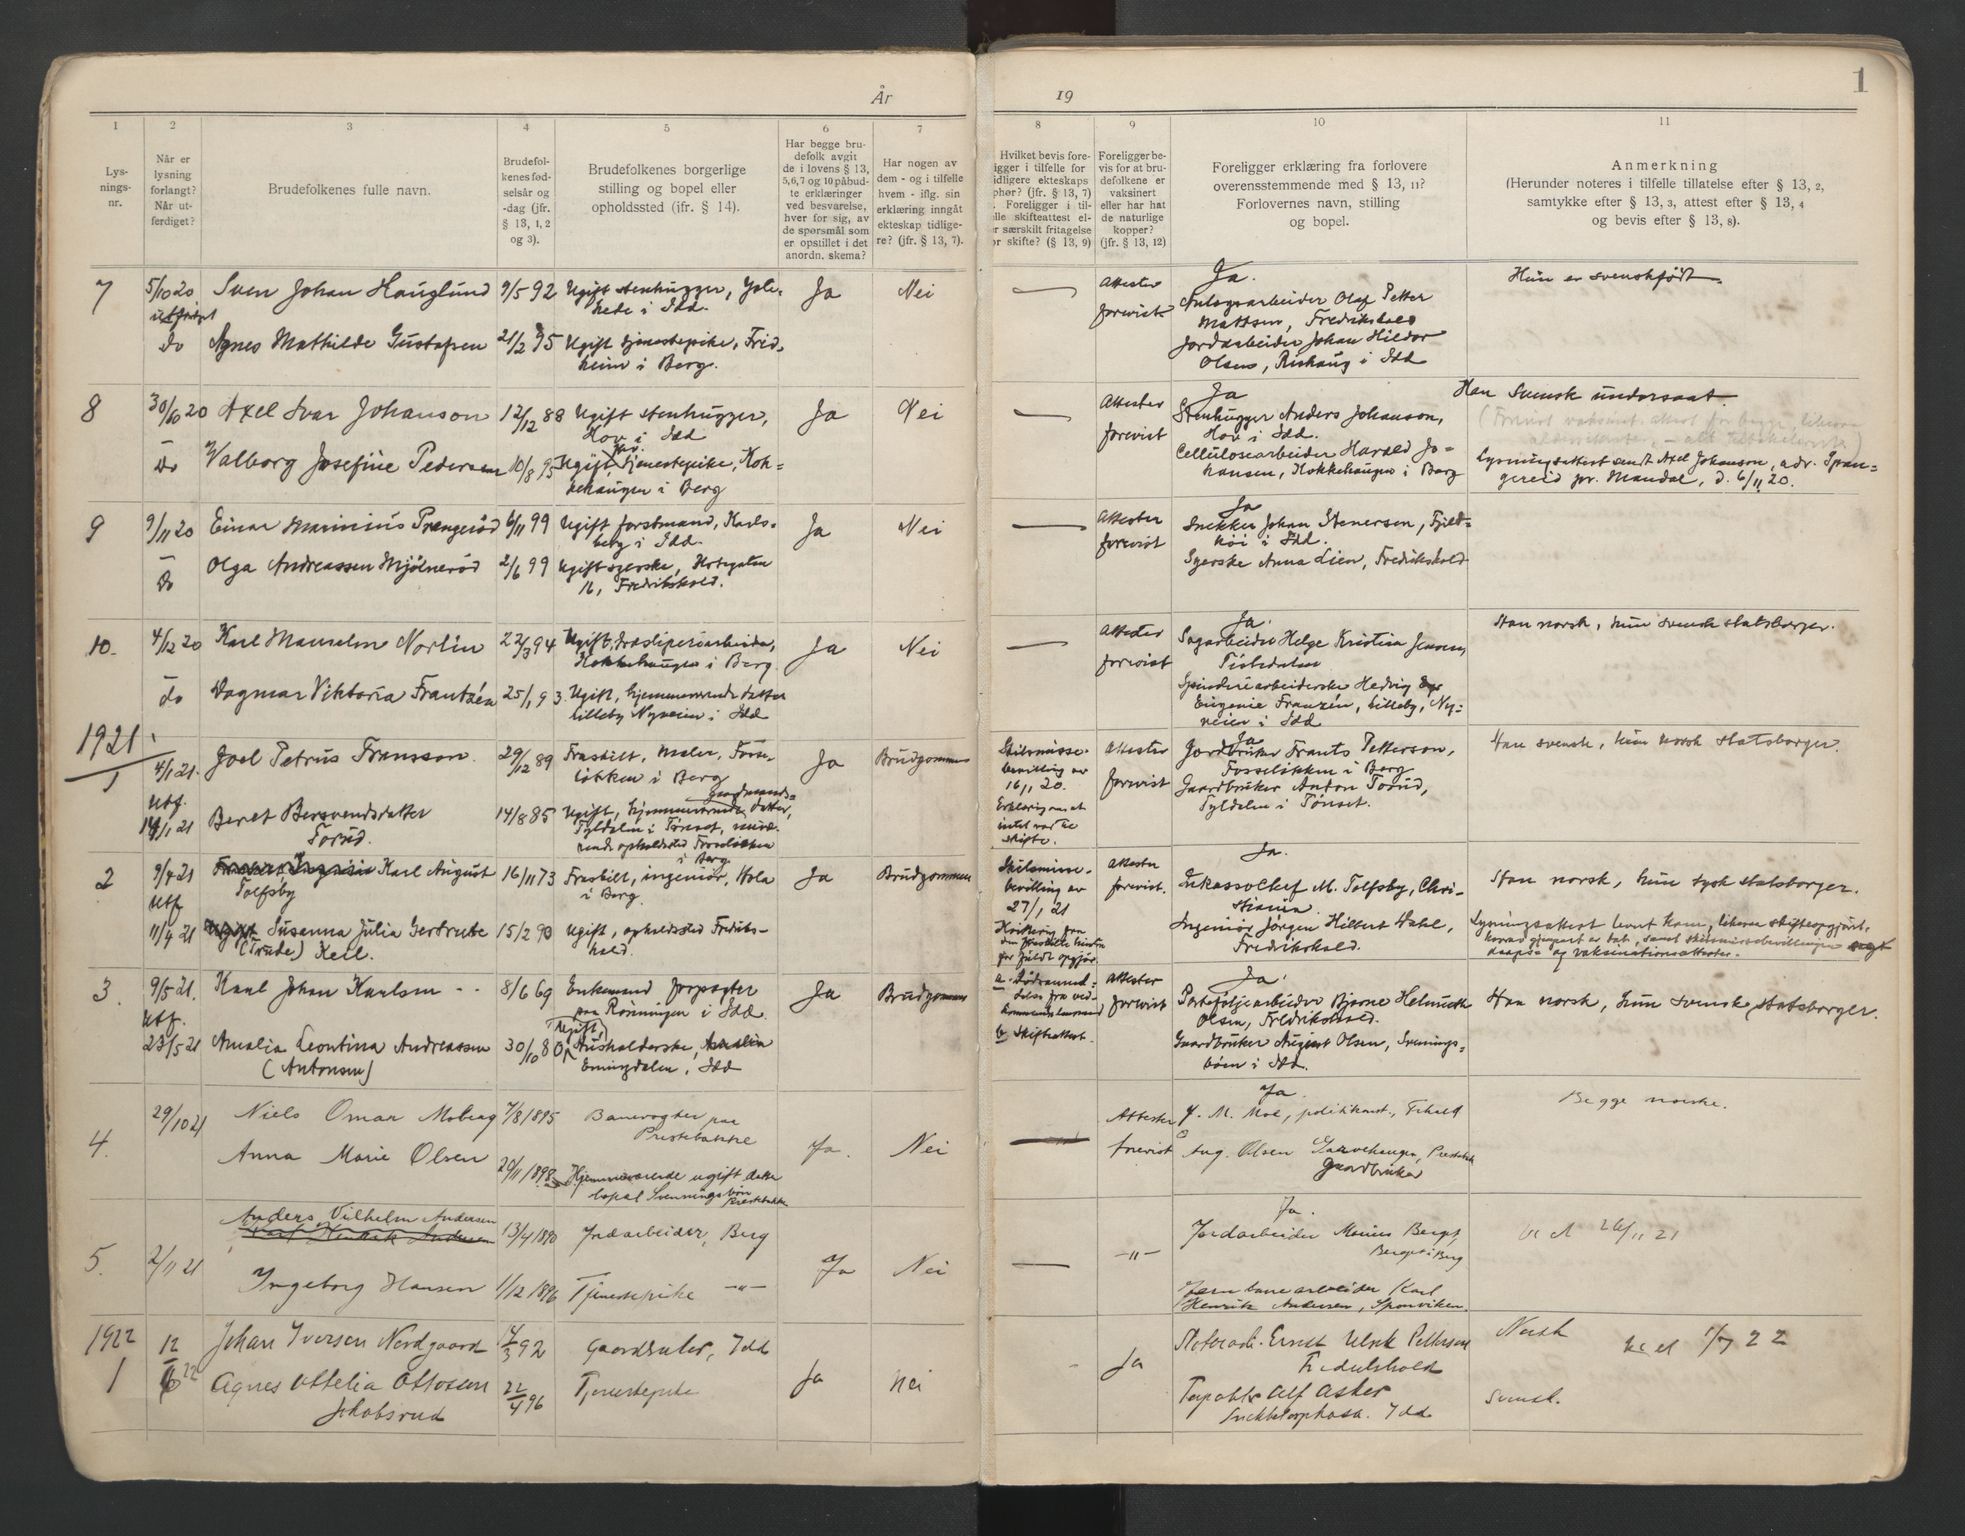 År
19
1
1
2
3
4
5
6
7
8
9
10
11
Lys-
nings-
nr.
Når er
lysning
forlangt?
Når ut-
ferdiget?
Brudefolkenes fulle navn.
Brudefol-
kenes fød-
selsår og
-dag (jfr.
§ 13, 1, 2
og 3).
Brudefolkenes borgerlige
stilling og bopel eller
opholdssted (ifr. § 14).
Har begge bru-
defolk avgit
de i lovens § 13,
5, 6, 7 og 10 påbud-
te erklæringer
ved besvarelse,
hver for sig, av
de spørsmål som
er opstillet i det
anordn. skema?
Har nogen av
dem - og i tilfelle
hvem - iflg. sin
erklæring inngått
ekteskap tidlige-
re? (jfr. § 13, 7).
Hvilket bevis fore-
ligger i tilfelle for
tidligere ekteskaps
ophør? (jfr. § 13, 7)
Foreligger i til-
elle skifteattest el-
er særskilt fritagelse
or skifte? (§ 13, 9)
Foreligger be-
vis for at bru-
defolkene er
vaksinert
eller har hat
de naturlige
kopper?
(jfr. § 13, 12)
Foreligger erklæring fra forlovere
overensstemmende med § 13, 11?
Forlovernes navn, stilling
og bopel.
Anmerkning
(Herunder noteres i tilfelle tillatelse efter § 13, 2,
samtykke efter § 13, 3, attest efter § 13, 4
og bevis efter § 13, 8).
7
5/10 20
Sven Johan Hauglund
9/5 92
Ugift stenhugger,
i Idd.
Ja
Nei
—
Attester
forevist
Ja.
Anlægsarbeider Olaf Petter
Mattsen, Fredrikshald
Jordarbeider Johan Hildor
Olsen, Rishaug i Idd
Hun er svenskfødt.
do
Agnes Mathilde Gustafsen
21/2 95
Ugift tjenestepike, Frid-
heim i Berg.
8
30/10 20
Axel Ivar Johanson
12/12 88
Ugift stenhugger,
Hov i Idd
Ja
Nei
—
Attester
forevist
Ja
Stenhugger Anders Johanson,
Hov i Idd.
Cellulosearbeider Harald Jo-
hansen, Kokkehaugen i Berg
Han svensk undersaat.
Lysningsattest sendt Axel Johanson, adr. Span-
gereid pr. Mandal, d. 6/11 20.
do
Valborg Josefine Pedersen
10/8 95
Ugift tjenestepike, Kok-
kehaugen i Berg
9
9/11 20
Einar Marinius Prangerød
6/11 99
Ugift forstmand, Karls-
berg i Idd.
Ja
Nei
—
Attester
forevist
Ja
Snekker Johan Stenersen, Fjeld-
høi i Idd.
Syerske Anna Lien, Fredrikshald
do
Olga Andreassen Mjølnerød
2/6 99
Ugift syerske,
16, Fredrikshald.
10.
4/12 20
Karl Manselm Norlin
22/3 94
Ugift, træsliperiarbeider,
Kokkehaugen i Berg.
Ja
Nei
—
Attester
forevist
Ja.
Sagarbeider Helge Kristian Jensen,
Tistedalen
Spinderiarbeiderske Hedvig
Eugenie Franzén, Lilleby, Ny-
veien i Idd
Han norsk, hun svensk statsborger.
do
Dagmar Viktoria Frantzén
25/1 93
Ugift, hjemmeværende datter
Lilleby Nyveien i Idd
1921
1
4/1 21.
Utf.
14/1 21
Joel Petrus Fransson.
29/12 89
Fraskilt, maler, Fosse-
løkken i Berg
Ja
Brudgommen
Skilsmisse-
bevilling av
16/1 20.
Erklæring om at
intet var at
skifte.
Attester
forevist
Ja
Jordbruker Frants Petterson,
Fosseløkken i Berg
Gaardbruker Anton Torud,
Tyldalen i Tønset.
Han svensk, hun norsk statsborger.
Beret Bersvendsdatter
Torud.
14/8 85
Ugift, hjemmeværende gaardmands-
datter,
Tyldalen i Tønset, nuvæ-
rende opholdssted Fosseløkken
i Berg
2
9/4 21
Utf
11/4 21
Karl August
Tolfsby
16/11 73
Fraskilt, ingeniør, Hola
i Berg.
Ja
Brudgommen
Skilsmisse-
bevilling av
27/1 21
Attester
forevist.
Ja.
Inkassochef M. Tolfsby, Chri-
stiania
Ingeniør Jørgen Hilbert Dahl,
Fredrikshald.
Han norsk, hun tysk statsborger.
Susanna Julia Gertrude
(Trude) Keil.
15/2 90
Ugift, opholdssted Fredriks-
hald.
3.
9/5 21.
Utf.
23/5 21
Karl Johan Karlsen
8/6 69
Enkemand forpagter
paa Rønningen i Idd.
Ja
Brudgommen
b. Skifteattest.
Attester
forevist
Ja.
Porteføljearbeider Bjarne Helmuth
Olsen, Fredrikshald.
Gaardbruker August Olsen, Svenings-
bøen i Idd.
Han norsk, hun svensk statsborger.
Amalia Leontina Andreassen
(Antonsen)
30/10 80
Ugift,
Husholderske,
Enningdalen, Idd
4.
29/10 21
Niels Omar Moberg
7/8 1895
Banevogter paa
Prestebakke
Ja.
Nei
—
Attester
forevist
Ja.
M. Moe, politikonst., Fr.hald
Aug. Olsen
Gaardbruker
Begge norske.
Anna Marie Olsen
20/11 1898
Hjemmeværende ugift datter
bopæl Svenningsbøn
Prestebakke
5.
2/11 21
Anders Vilhelm Andersen
Karl Henrik Andersen
13/4 1890
Jordarbeider, Berg
Ja
Nei
—
-"-
Ja.
Jordarbeider Marius Berget,
Berget i Berg
Jernbanearbeider Karl
Henrik Andersen, Sponviken.
26/11 21
Ingeborg Hansen
1/12 1896
Tjenestepike -"-
1922
1
12/6 22
Johan Iversen Nordgaard
17/3 92
Gaardbruker, Idd
Ja
Nei
-
Ja
Ernst Ulrik Pettersen
Fredrikshald
Alf Asker
Idd
Norsk
1/7 22
Svensk.
Agnes Ottelia Ottosen
Jakobsrud
22/4 96
Tjenestepike